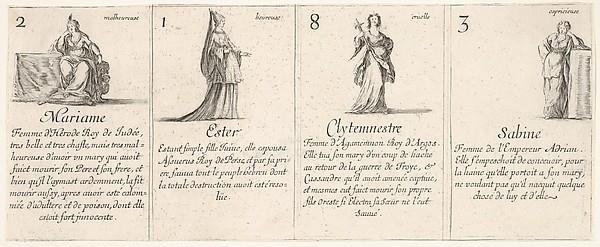 2 malheureuse
Mariame
Femme d'Hérode Roy de Judée,
tres belle et tres chaste, mais tres mal-
heureuse d'auoir vn mary qui auoit
faict mourir son Pere et son frere, et
bien qu'il l'aymast ardemment, la fit
mourir aussy, apres auoir esté calom-
niée d'adultere et de poison, dont elle
estoit fort jnnocente.
1 heureuse
Ester
Estant simple fille Juiue, elle espousa
Assuerus Roy de Perse, et par sa pri-
ere, sauua tout le peuple hébreu dont
la totale destruction auoit esté reso-
lüe.
8 cruelle
Clytemnestre
Femme d'Agamemnon Roy d'Argos.
Elle tua son mary d'vn coup de hache
au retour de la guerre de Troye, &
Cassandre qu'il auoit amenée captiue,
et mesmes eut faict mourir son propre
fils Oreste si Electra sa Sœur ne l'eut
Sauué.
3 capricieuse
Sabine
Femme de l'Empereur Adrian.
Elle s'empeschoit de conceuoir, pour
la haine qu'elle portoit a son mary,
ne voulant pas qu'il nacquit quelque
chose de luy et d'elle